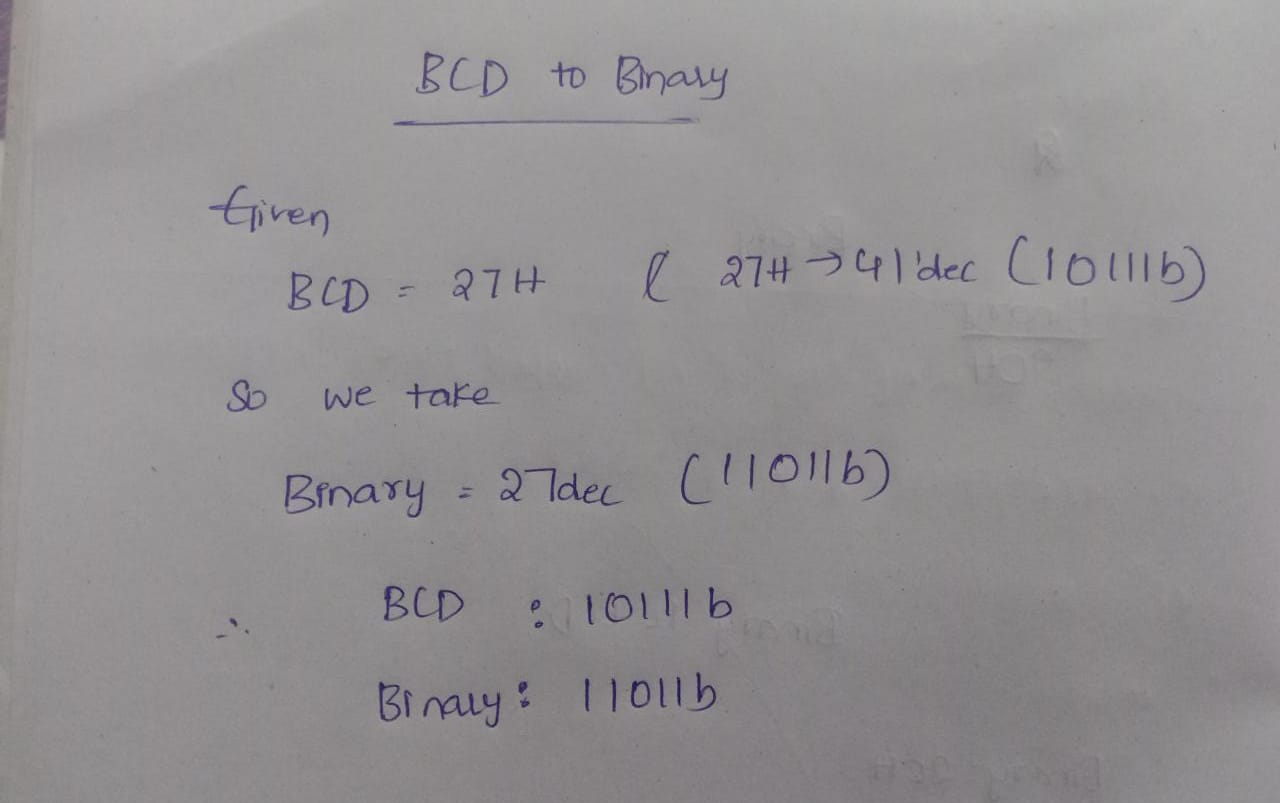 BCD to Binary
Given
BCD = 27H ( 27H → 41'dec (10111b)
So we take
Binary = 27dec (11011b)
∴ BCD : 10111b
Binary : 11011b